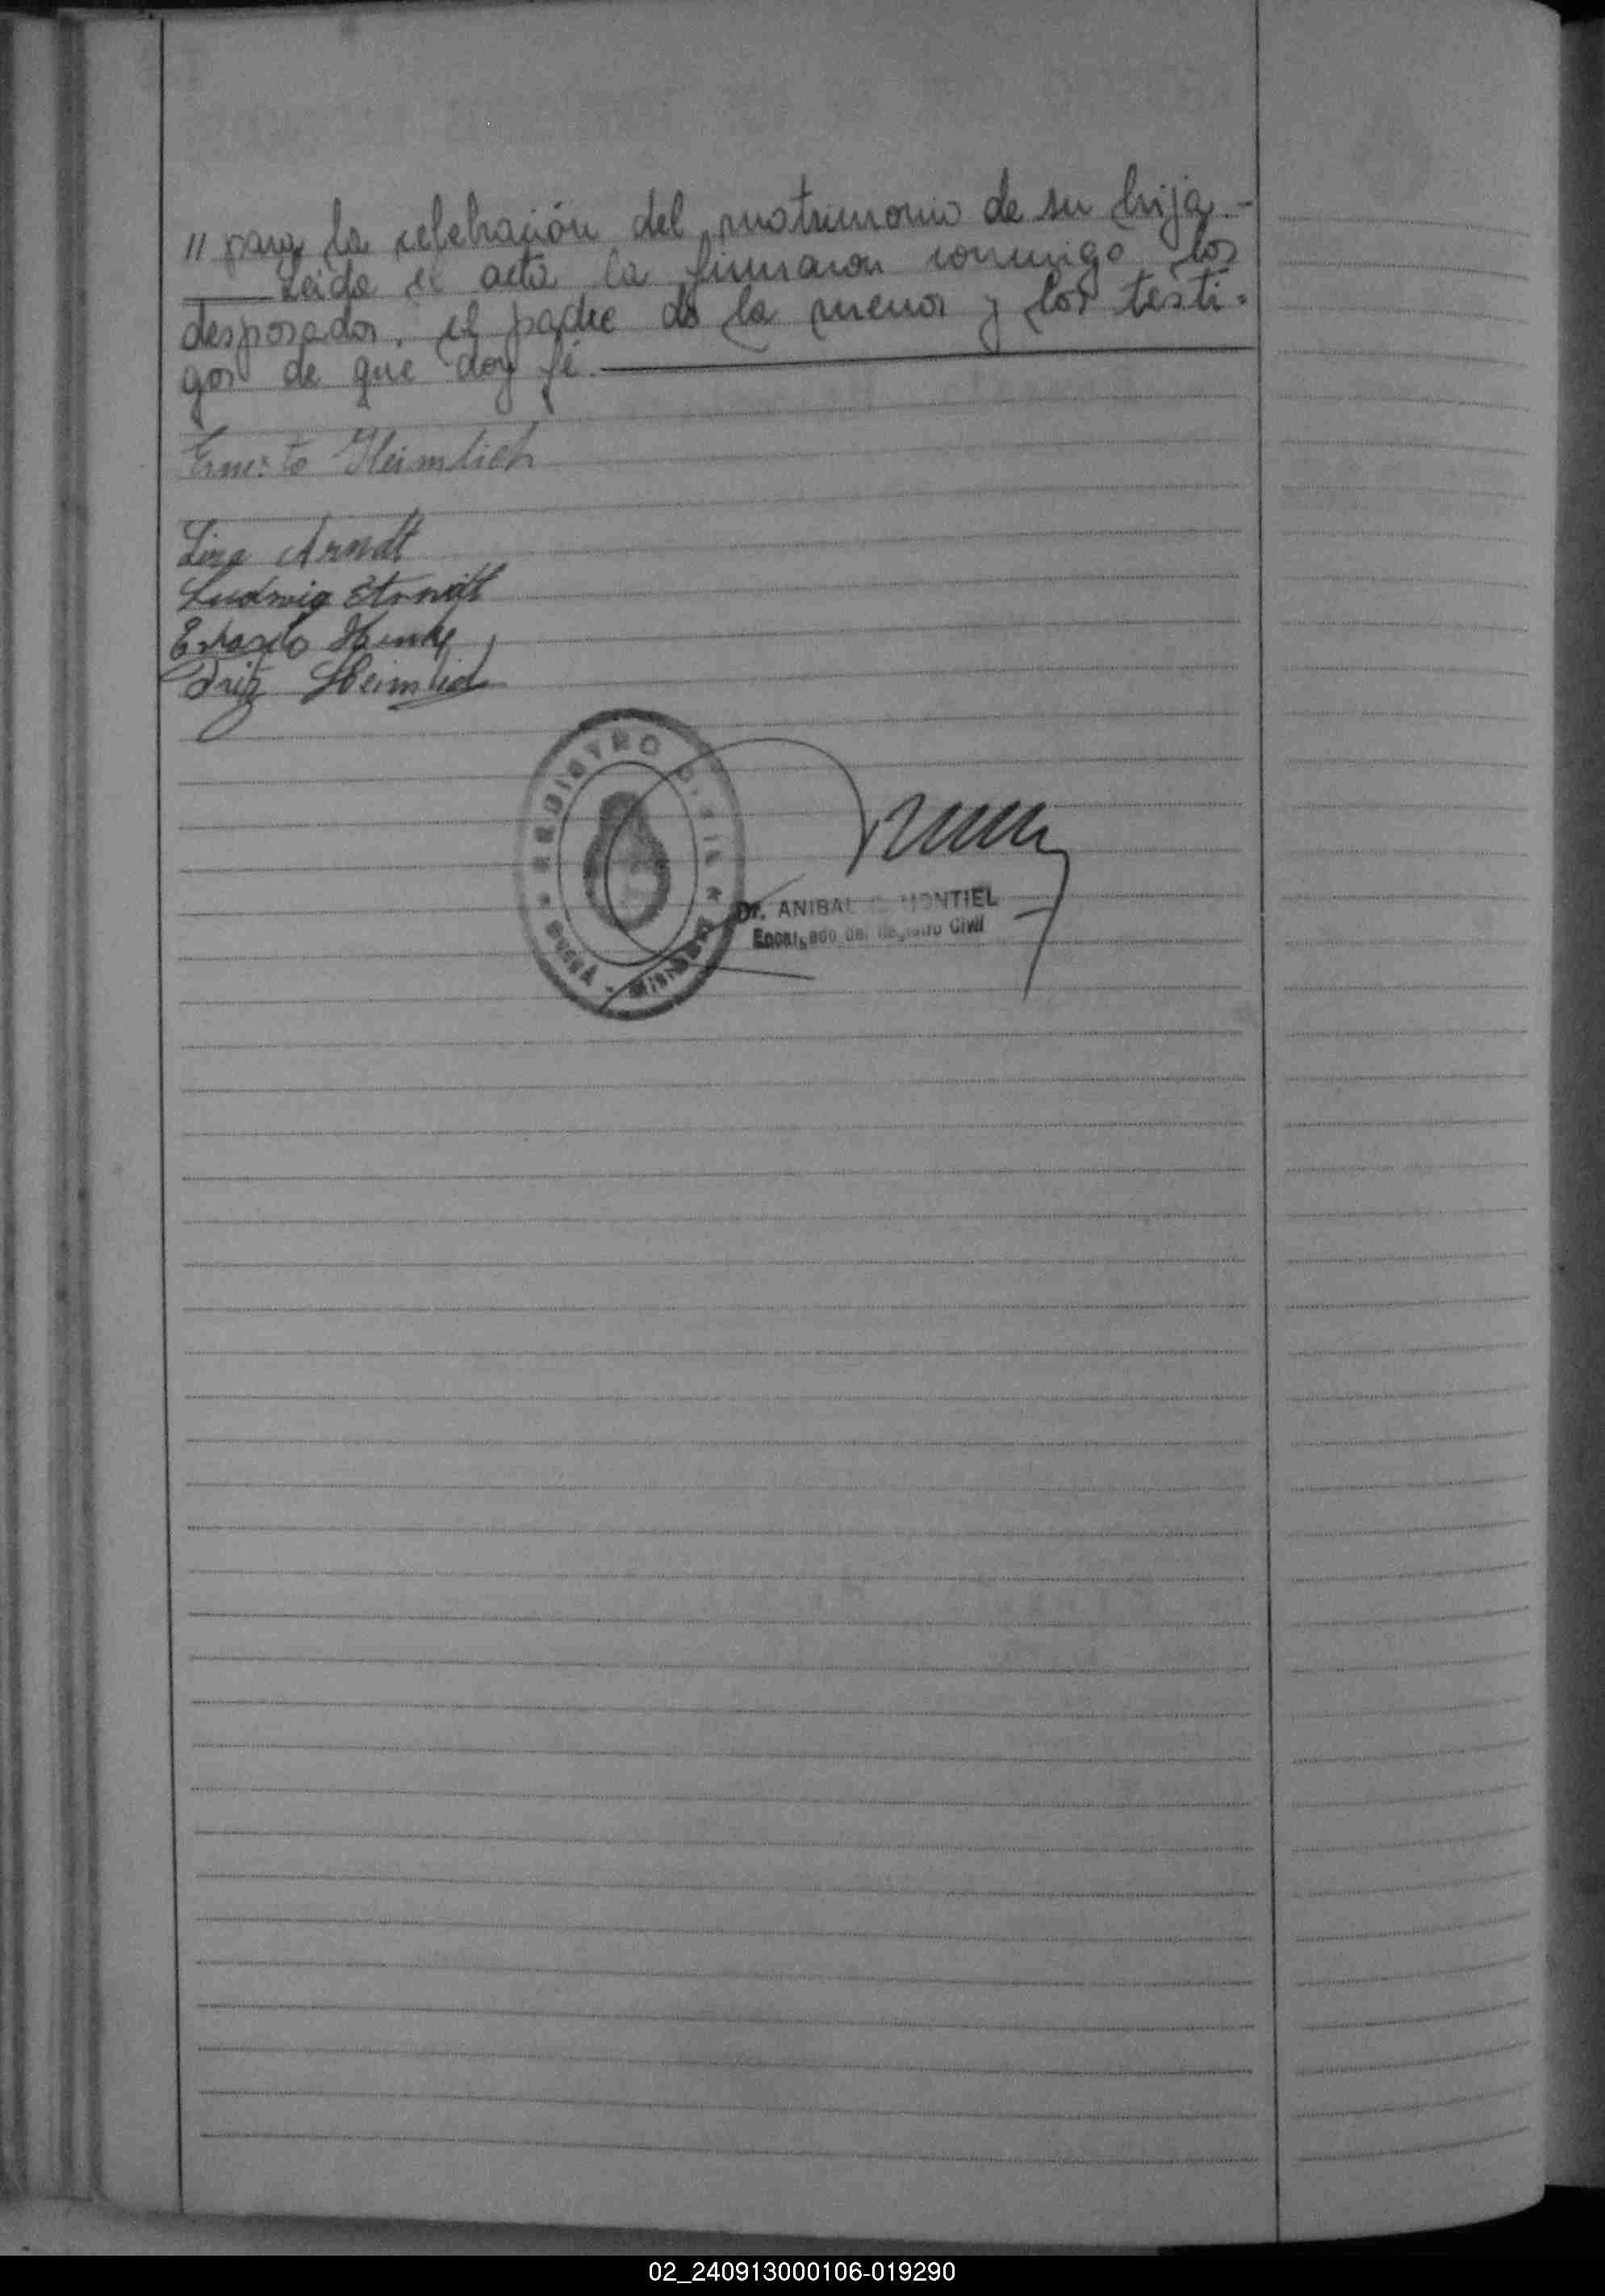 // para la celebración del matrimonio de su hija.-
Leída el acta la firmaron conmigo los
desposados, el padre de la menor y los testi-
gos de que doy fé.
Ernesto Heimlich
Lina Arndt
Ludwig Arndt
Fritz Heimlich
REGISTRO CIVIL
MISIONES
Dr. ANIBAL MONTIEL
Encargado del Registro Civil
02_240913000106-019290